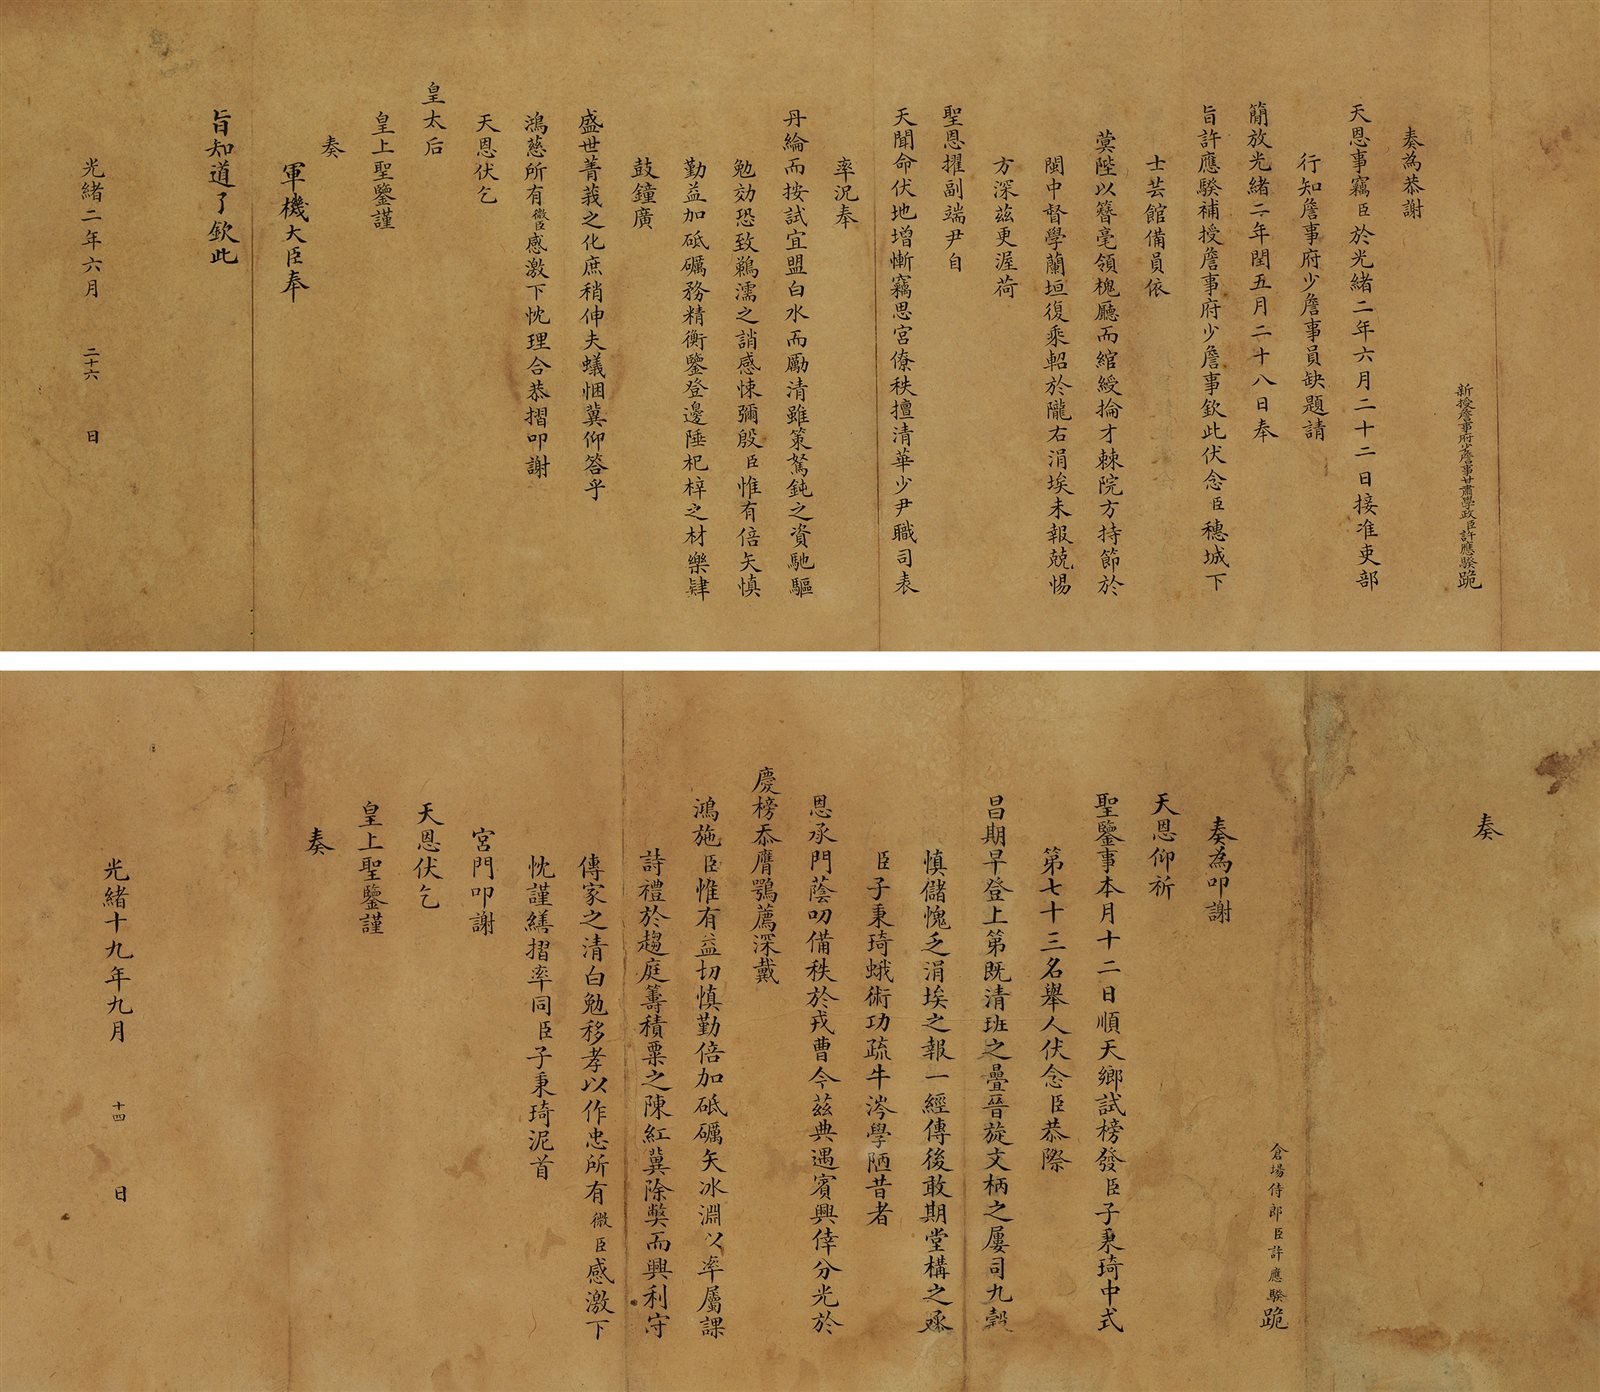 新授詹事府少詹事甘肅學政臣許應騤跪
奏為恭謝
天恩事竊臣於光緒二年六月二十二日接准吏部
行知詹事府少詹事員缺題請
簡放光緒二年閏五月二十八日奉
旨許應騤補授詹事府少詹事欽此伏念臣穗城下
士芸館備員依
蓂陛以簪毫領槐廳而綰綬掄才棘院方持節於
閩中督學蘭垣復乘軺於隴右涓埃未報兢惕
方深茲更渥荷
聖恩擢副端尹自
天聞命伏地增慚竊思宮僚秩擅清華少尹職司表
率況奉
丹綸而按試宜盟白水而勵清雖策駑鈍之資馳驅
勉効恐致鵜濡之誚感悚彌殷臣惟有倍矢慎
勤益加砥礪務精衡鑒登邊陲杞梓之材樂肄
鼓鐘廣
盛世菁莪之化庶稍伸夫蟻悃冀仰答乎
鴻慈所有微臣感激下忱理合恭摺叩謝
天恩伏乞
皇太后
皇上聖鑒謹
奏
軍機大臣奉
旨知道了欽此
光緒二年六月 二十六 日
奏
倉場侍郎臣許應騤跪
奏為叩謝
天恩仰祈
聖鑒事本月十二日順天鄉試榜發臣子秉琦中式
第七十三名舉人伏念臣恭際
昌期早登上第既清班之疊晉旋文柄之屢司九穀
慎儲愧乏涓埃之報一經傳後敢期堂構之承
臣子秉琦蛾術功疏牛涔學陋昔者
恩承門蔭叨備秩於戎曹今茲典遇賓興倖分光於
慶榜忝膺鶚薦深戴
鴻施臣惟有益切慎勤倍加砥礪矢冰淵以率屬課
詩禮於趨庭籌積粟之陳紅冀除獘而興利守
傳家之清白勉移孝以作忠所有微臣感激下
忱謹繕摺率同臣子秉琦泥首
宮門叩謝
天恩伏乞
皇上聖鑒謹
奏
光緒十九年九月 十四 日